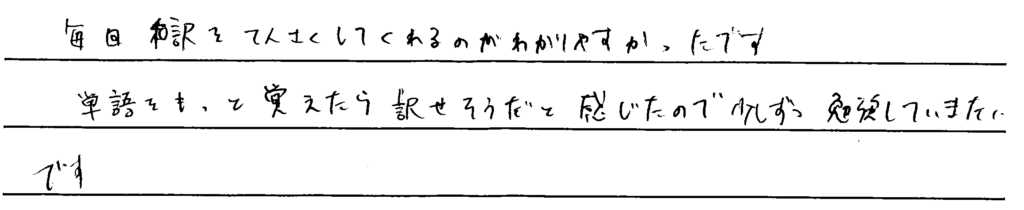 毎回 和訳を てんさくしてくれるのがわかりやすかったです
単語をもっと覚えたら訳せそうだと感じたので少しずつ勉強していきたい
です